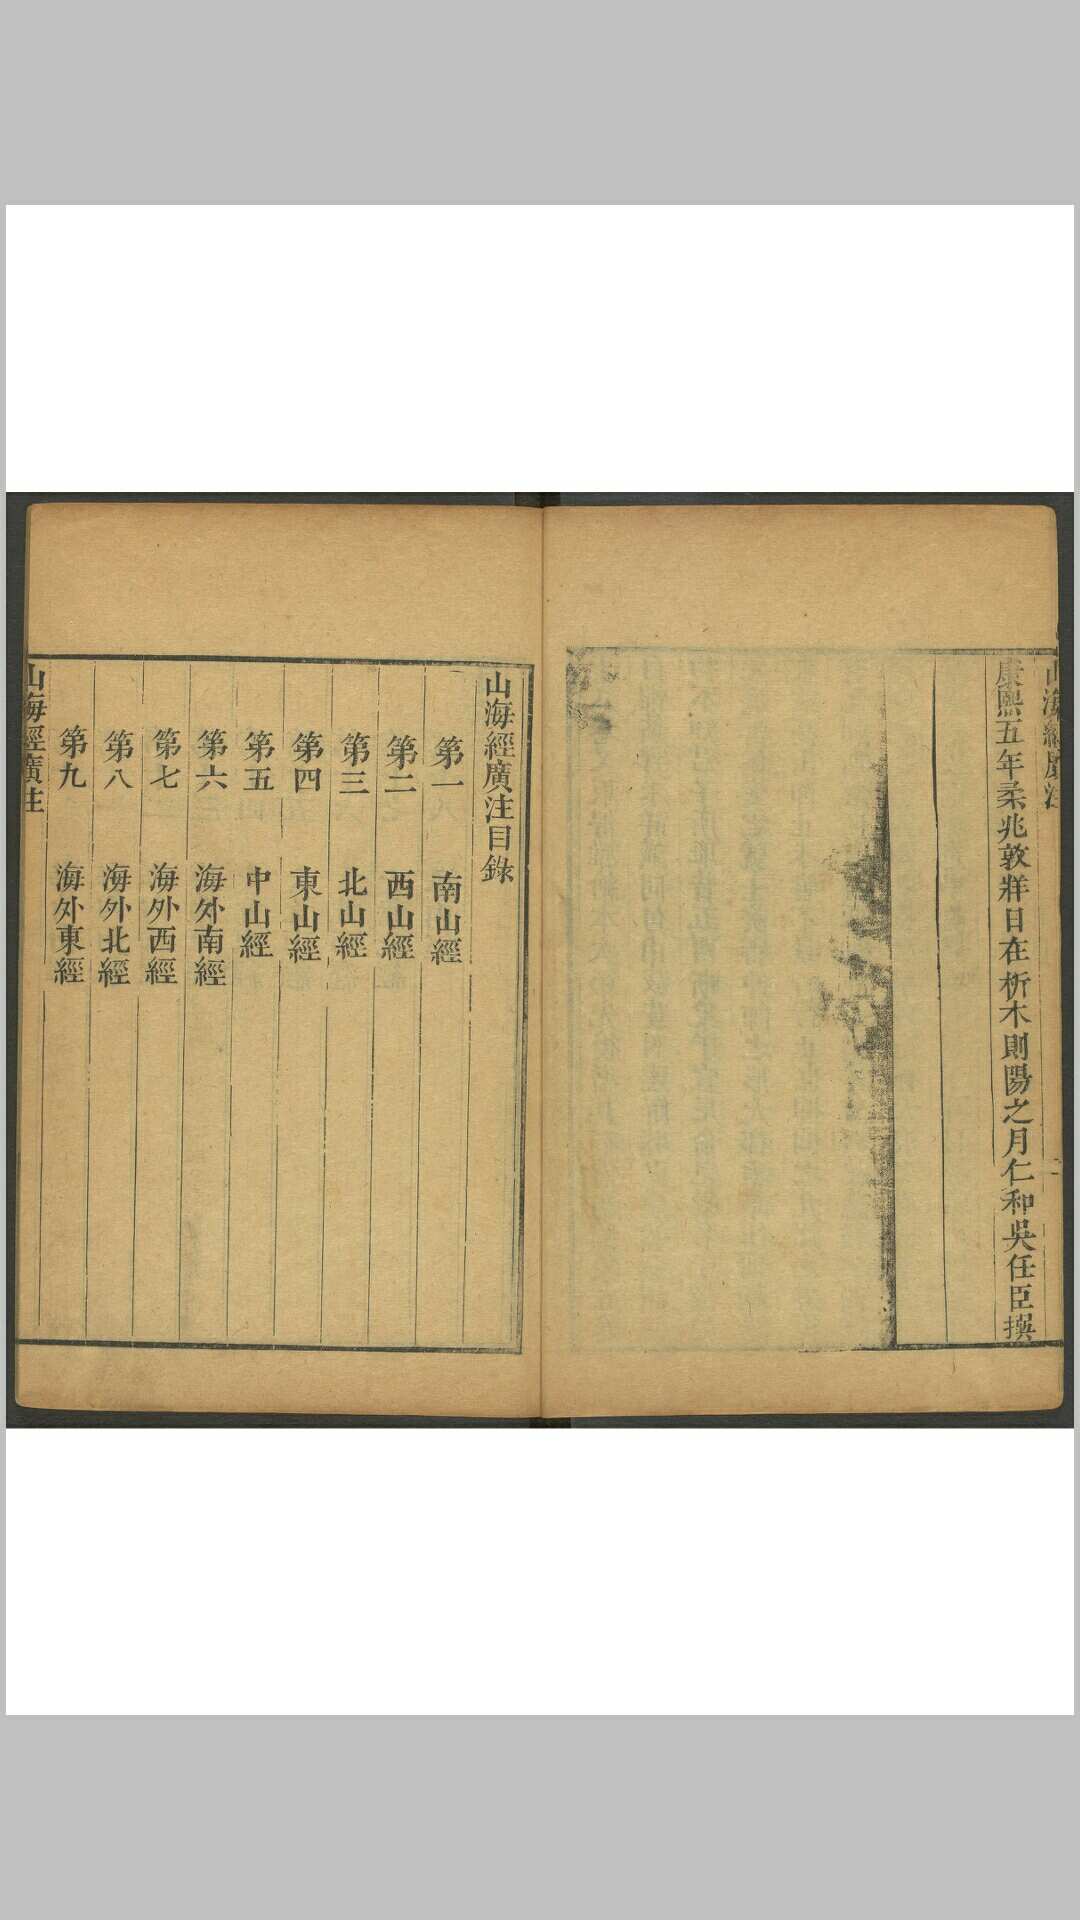 山海經廣注
二
康熙五年柔兆敦牂日在析木則陽之月仁和吳任臣撰
山海經廣注目錄
第一 南山經
第二 西山經
第三 北山經
第四 東山經
第五 中山經
第六 海外南經
第七 海外西經
第八 海外北經
第九 海外東經
山海經廣注